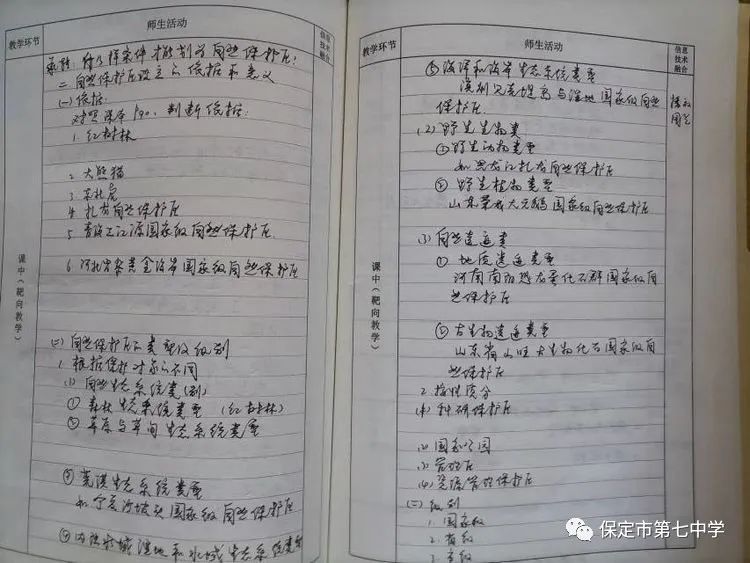 教学环节
师生活动
信息
技术
融合
二 自然保护区设立的依据和意义
(一)依据:
对照课本P90, 判断依据:
1. 红树林
2. 大熊猫
3. 东北虎
4. 扎龙自然保护区
5. 青海三江源国家级自然保护区.
6. 河北昌黎黄金海岸国家级自然保护区
课中(靶向教学)
(二) 自然保护区的类型及级别
1. 根据保护对象的不同
(1) 自然生态系统类(别)
① 森林生态系统类型 (红树林)
② 草原与草甸生态系统类型
③ 荒漠生态系统类型
如宁夏沙坡头国家级自然保护区
④ 内陆湿地和水域生态系统类型
教学环节
师生活动
信息
技术
融合
⑤ 海洋和海岸生态系统类型
国家级自然
保护区.
播放
(2) 野生生物类
① 野生动物类型
如黑龙江扎龙自然保护区
② 野生植物类型
山东荣成大天鹅国家级自然保护区
(3) 自然遗迹类
① 地质遗迹类型
河南南阳恐龙蛋化石群国家级自
然保护区
课中(靶向教学)
② 古生物遗迹类型
山东省山旺古生物化石国家级自
然保护区
2. 按性质分
(1) 科研保护区
(2) 国家公园
(3) 管理区
(4) 资源管理保护区
(二) 级别
1. 国家级
2. 省级
3. 市级
保定市第七中学